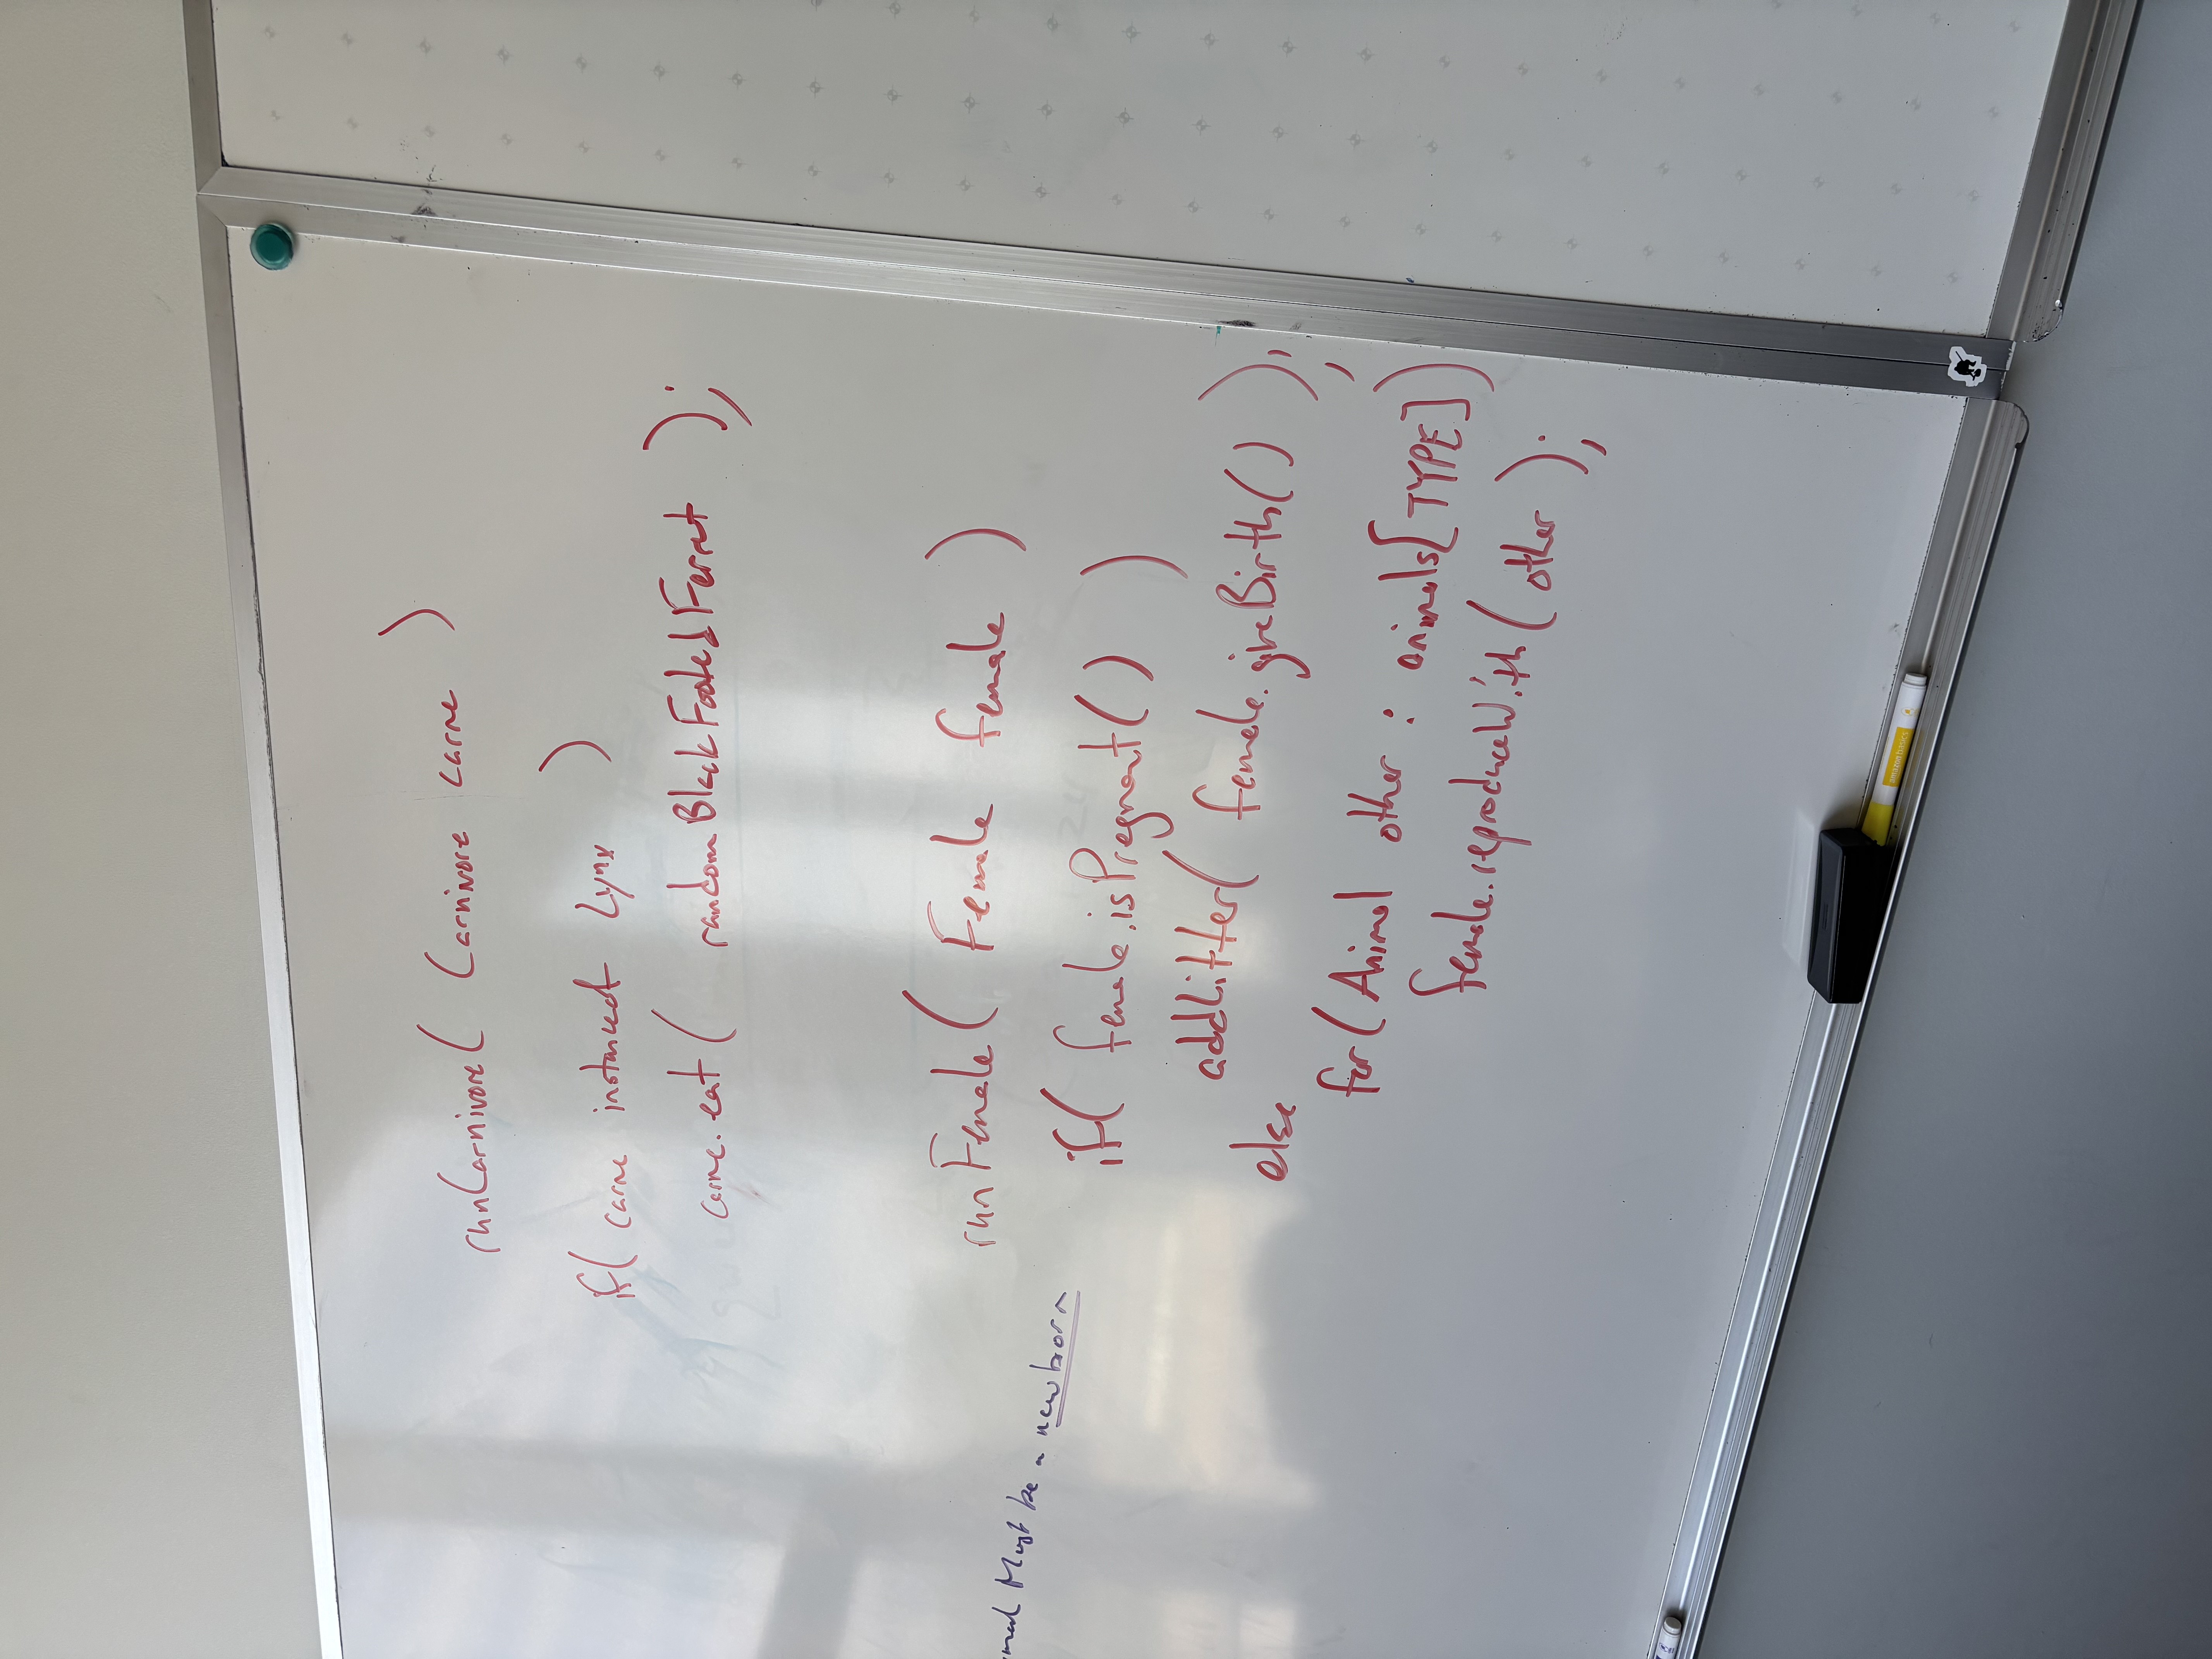 runCarnivore( Carnivore carne )
if( carne instanceof Lynx )
carne.eat( randomBlackFootedFerret );
runFemale( Female female )
Must be a newborn
if( female.isPregnant() )
addLitter( female.giveBirth() );
else
for( Animal other : animals[TYPE])
female.reproduceWith( other );
amazon basics